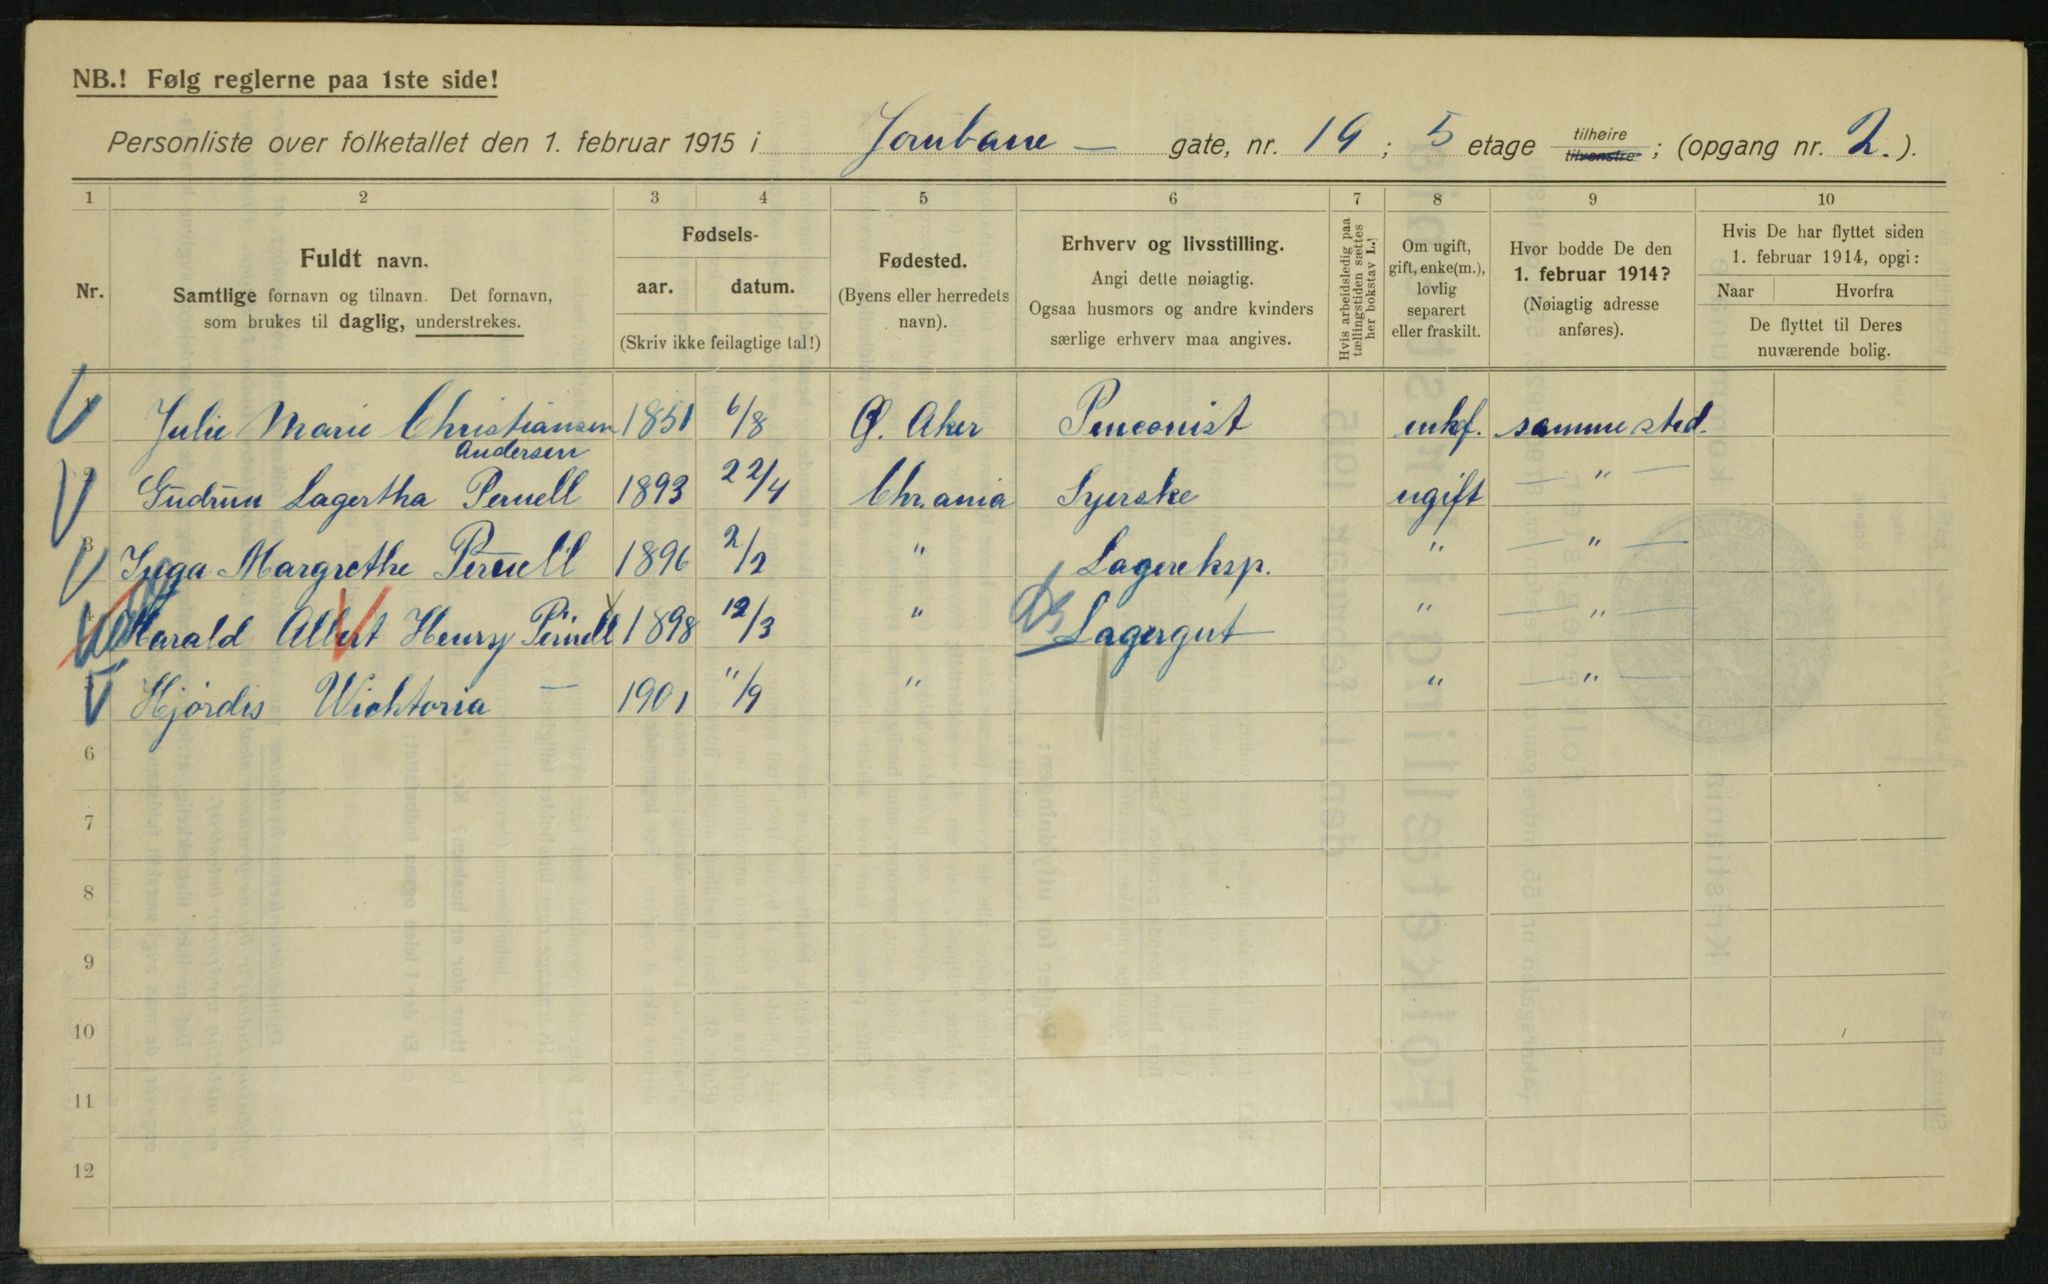 NB.! Følg reglerne paa 1ste side!
Personliste over folketallet den 1. februar 1915 i Jernbane — gate, nr. 19; 5 etage tilhøire tilvenstre; (opgang nr. 2.).
1 2 3 4 5 6 7 8 9 10
Nr.
Fuldt navn.
Samtlige fornavn og tilnavn. Det fornavn,
som brukes til daglig, understrekes.
Fødsels-
aar. datum.
(Skriv ikke feilagtige tal!)
Fødested.
(Byens eller herredets
navn).
Erhverv og livsstilling.
Angi dette nøiagtig.
Ogsaa husmors og andre kvinders
særlige erhverv maa angives.
Hvis arbeidsledig paa
tællingstiden sættes
her bokstav L.!
Om ugift,
gift, enke(m.),
lovlig
separert
eller fraskilt.
Hvor bodde De den
1. februar 1914?
(Nøiagtig adresse
anføres).
Hvis De har flyttet siden
1. februar 1914, opgi:
Naar Hvorfra
De flyttet til Deres
nuværende bolig.
Julie Marie Christiansen 1851 6/8 Ø. Aker Penconist enkf. samme sted.
Andersen
2 Gudrun Lagertha Pernell 1893 22/4 Chr.ania Syerske ugift — " —
3 Inga Margrethe Pernell 1896 2/2 " Lagereksp. " — " —
4 Harald Albert Henry Pernell 1898 12/3 " Lagergut " — " —
5 Hjördis Wichtoria — 1901 11/9 " " — " —
6
7
8
9
10
11
12